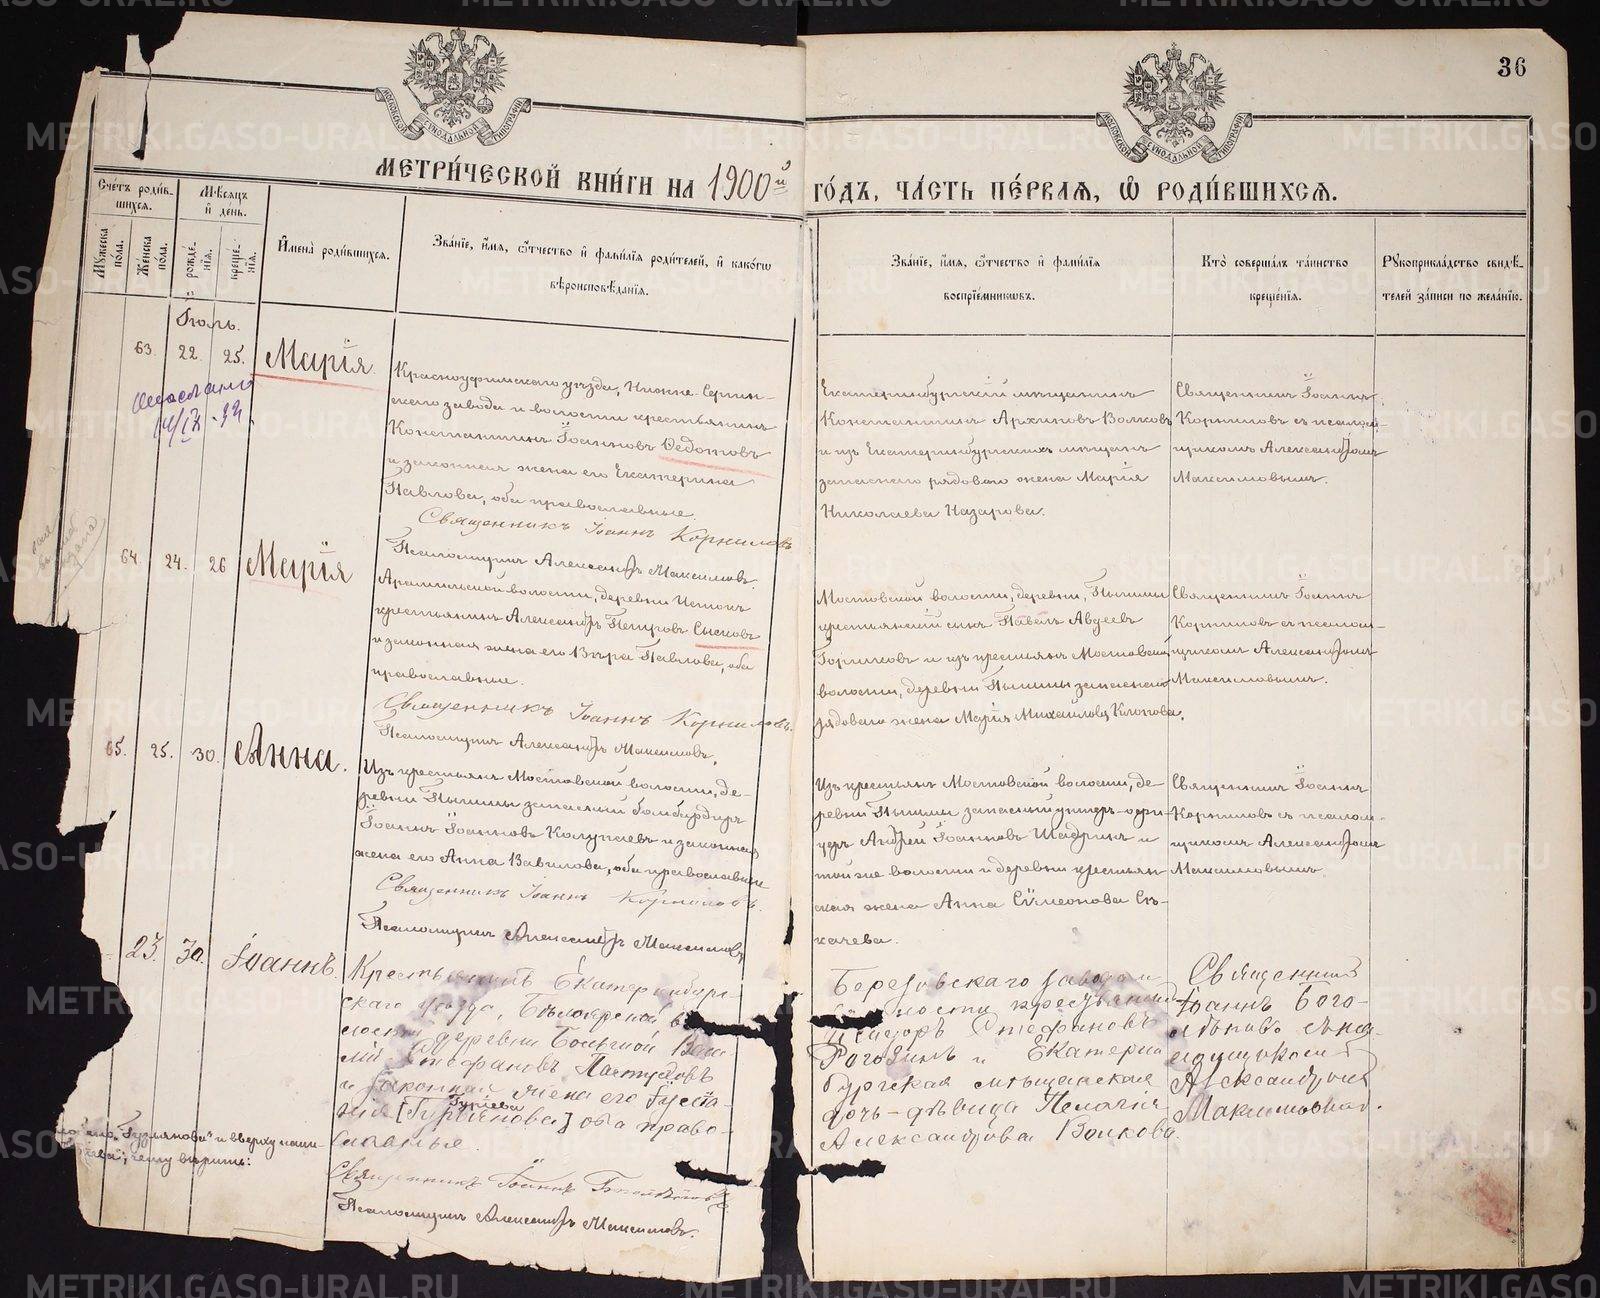 36
МЕТРИ́ЧЕСКОЙ КНИ́ГИ НА 1900й ГО́ДЪ, ЧА́СТЬ ПЕ́РВАЯ, Ѡ РОДИ́ВШИХСЯ.
Сче́тъ роди́в-
шихся.
Мѣсяцъ
и день.
Му́жеска
по́ла.
Же́нска
по́ла.
рожде́-
нія.
креще́-
нія.
Имена̀ роди́вшихся.
Зва́ніе, имя, о́тчество и фами́лія роди́телей, и како́гѡ
вѣроисповѣ́данія.
Зва́ніе, имя, о́тчество и фами́лія
воспріе́мниковъ.
Кто̀ соверша́лъ та́инство
креще́нія.
Рукоприкла́дство свидѣ́-
телей за́писи по жела́нію.
Іюль.
63. 22. 25. Марія
Красноуфимскаго уѣзда, Нижне-Сергин-
скаго завода и волости крестьянинъ
Константинъ Іоанновъ Ѳедотовъ
и законная жена его Екатерина
Павлова, оба православные.
Священникъ Іоаннъ Корниловъ
Псаломщикъ Александръ Максимовъ.
Екатеринбургскій мѣщанинъ
Константинъ Архиповъ Волковъ
и изъ Екатеринбургскихъ мѣщанъ
запаснаго рядового жена Марія
Николаева Назарова.
Священникъ Іоаннъ
Корниловъ съ псалом-
щикомъ Александромъ
Максимовымъ.
64. 24. 26 Марія
Арамильской волости, деревни Истокъ
крестьянинъ Александръ Петровъ Сысковъ
и законная жена его Вѣра Павлова, оба
православные.
Священникъ Іоаннъ Корниловъ.
Псаломщикъ Александръ Максимовъ.
Мостовской волости, деревни, Пышмы
крестьянскій сынъ Павелъ Авдеевъ
и изъ крестьянъ Мостовской
волости, деревни Пышмы запаснаго
рядового жена Марія Михайлова Клопова.
Священникъ Іоаннъ
Корниловъ съ псалом-
щикомъ Александромъ
Максимовымъ.
65. 25. 30. Анна.
Изъ крестьянъ Мостовской волости, де-
ревни Пышмы запасный бомбардиръ
Іоаннъ Іоанновъ Колупаевъ и законная
жена его Анна Вавилова, оба православные
Священникъ Іоаннъ Корниловъ.
Псаломщикъ Александръ Максимовъ
Изъ крестьянъ Мостовской волости, де-
ревни Пышмы запасный унтеръ-офи-
церъ Андрей Іоанновъ Шадринъ и
той же волости и деревни крестьян-
ская жена Анна Сѵмеонова Ск-
качева.
Священникъ Іоаннъ
Корниловъ съ псалом-
щикомъ Александромъ
Максимовымъ.
23. 30. Іоаннъ.
Крестьянинъ Екатеринбург-
скаго уѣзда, Бѣлоярской во-
лости деревни Большой
Стефановъ Пастуховъ
и законная жена его
Гуріева
оба право-
славные.
Священникъ Іоаннъ
Псаломщикъ Александръ Максимовъ.
Березовскаго завода и
волости крестьянинъ
Исидоръ Стефановъ
Рогозинъ и Екатерин-
бургская мѣщанская
дочь-дѣвица Пелагія
Александрова Волкова.
Священникъ
Іоаннъ Бого-
лѣповъ съ пса-
ломщикомъ
Александромъ
Максимовымъ.